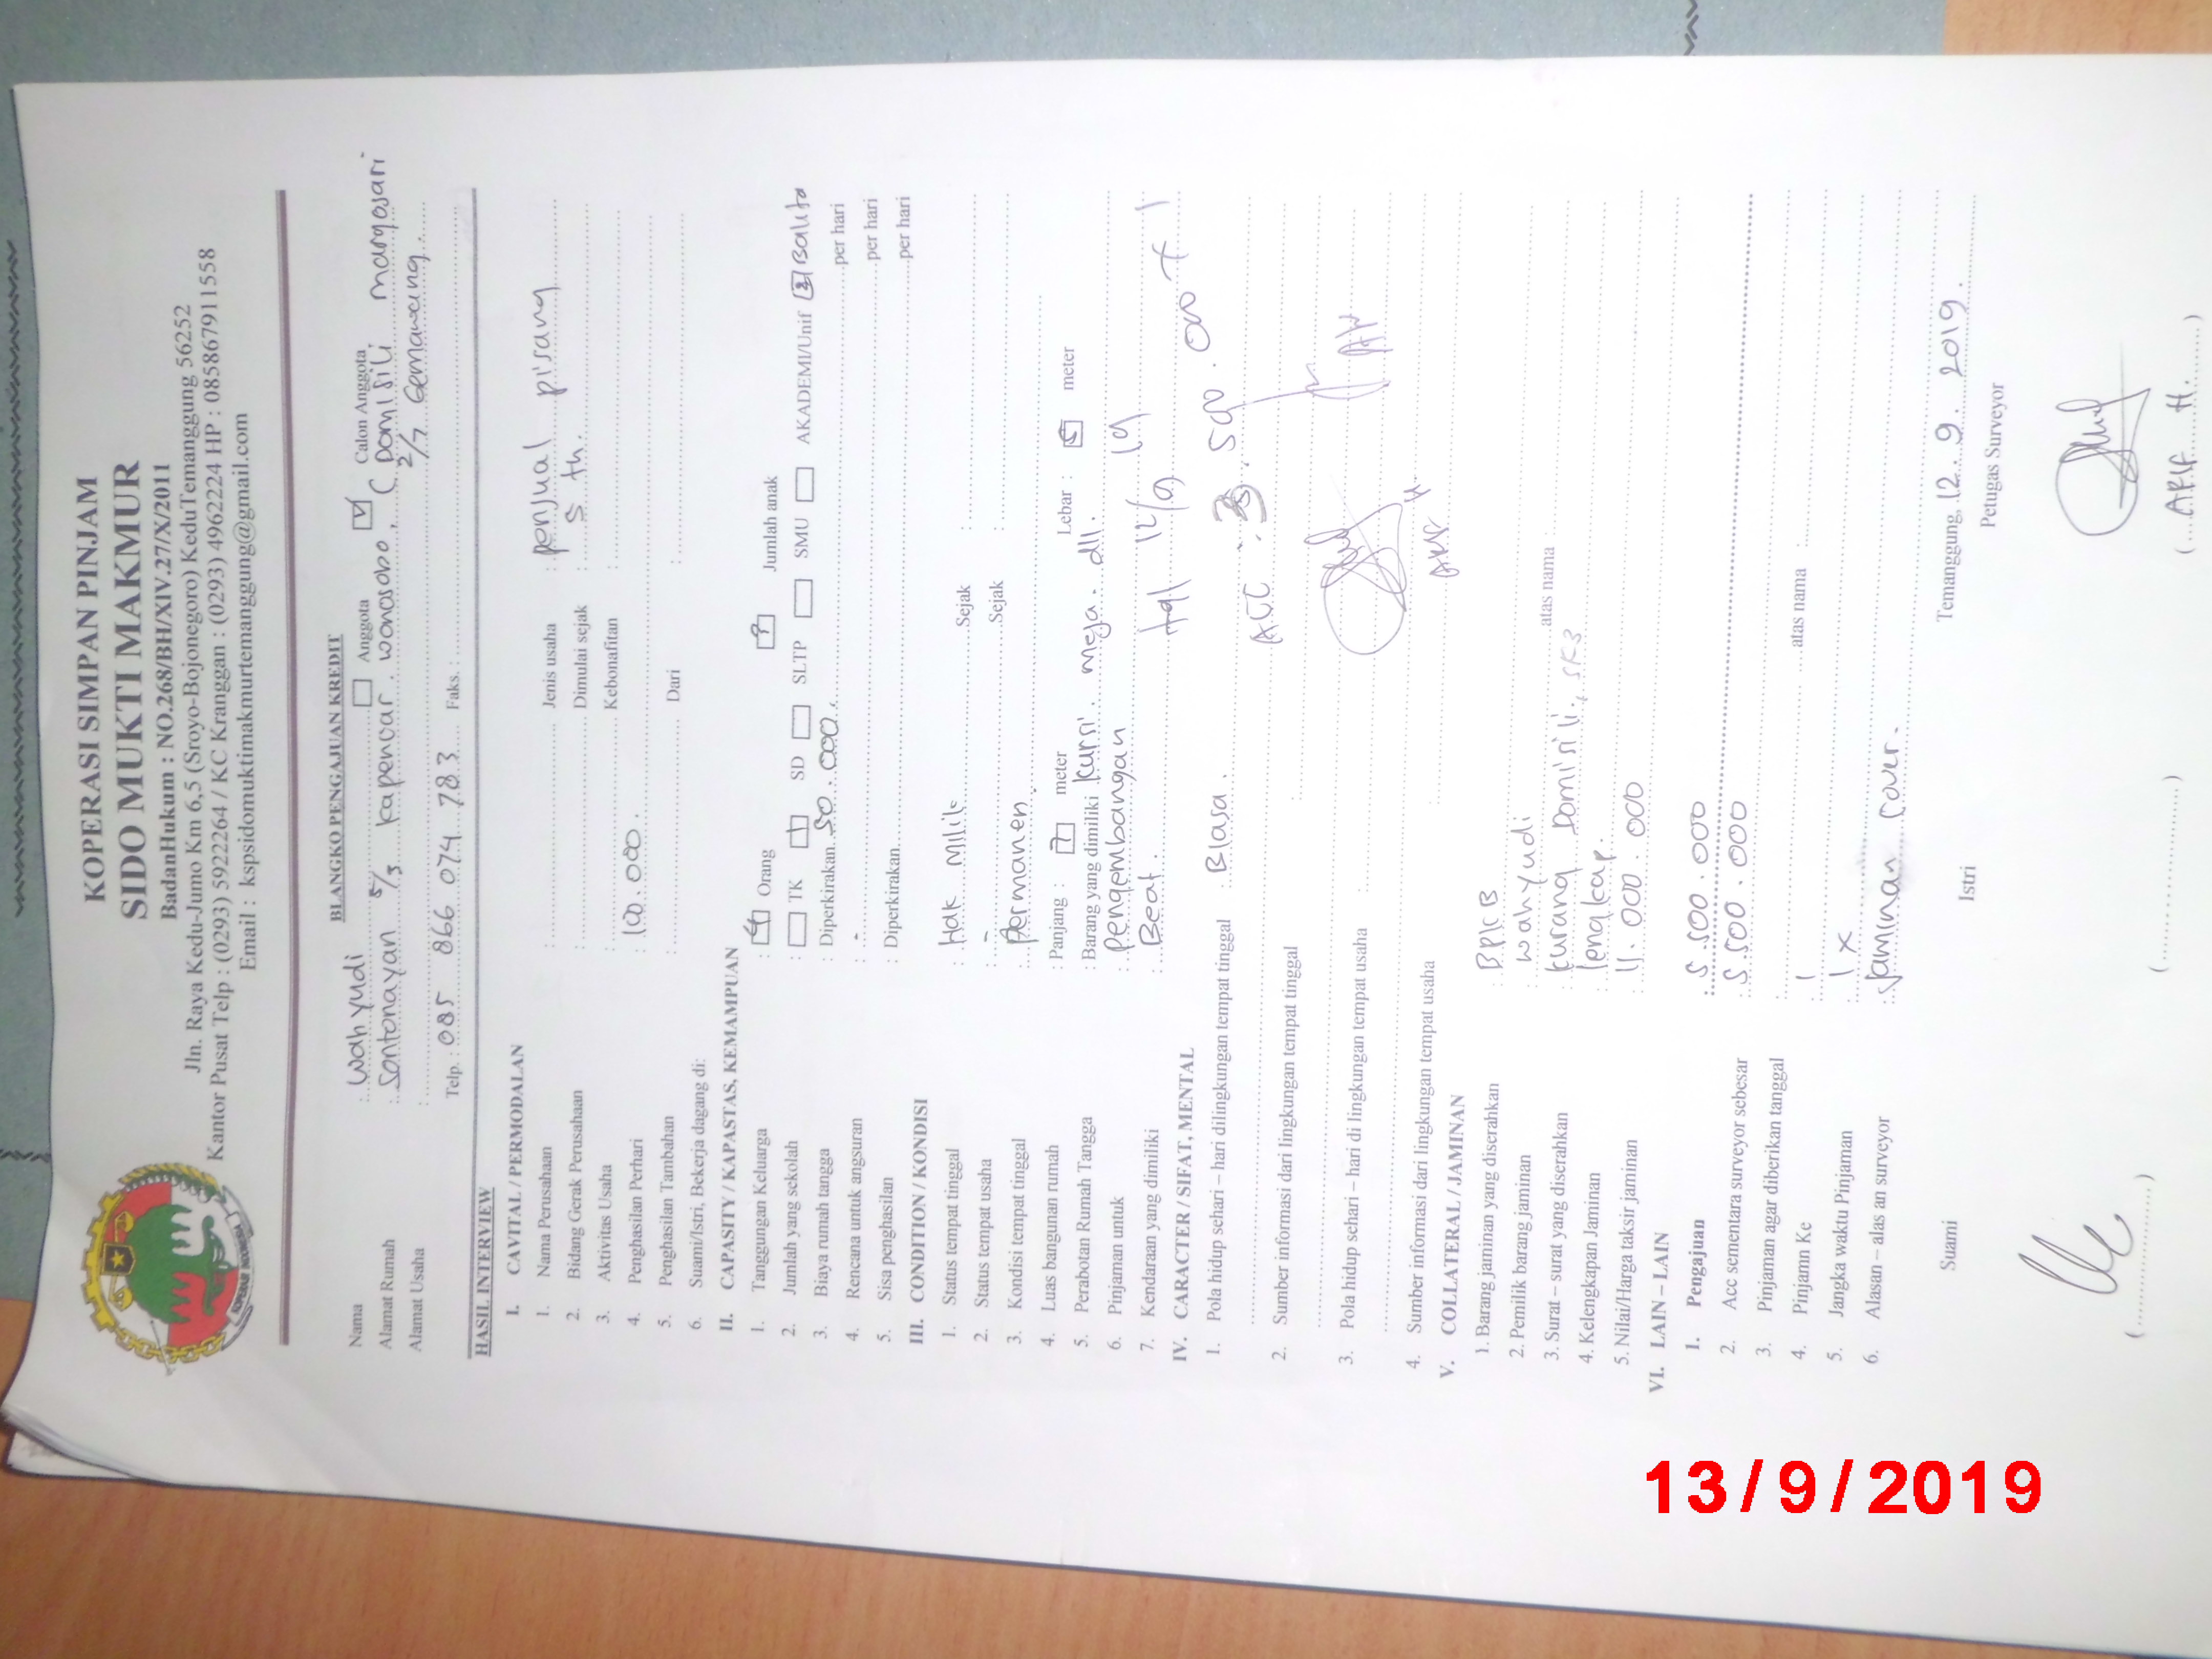 KOPERASI SIMPAN PINJAM
SIDO MUKTI MAKMUR
BadanHukum : NO.268/BH/XIV.27/X/2011
Jln. Raya Kedu-Jumo Km 6,5 (Sroyo-Bojonegoro) KeduTemanggung 56252
Kantor Pusat Telp : (0293) 5922264 / KC Kranggan : (0293) 4962224 HP : 085867911558
Email : kspsidomuktimakmurtemanggung@gmail.com
KOPERASI INDONESIA
BLANGKO PENGAJUAN KREDIT
Nama : Wahyudi Anggota Calon Anggota
Alamat Rumah : Sontonayan 5/3 Kapencar. Wonosobo. (Domisili Margosari
Alamat Usaha : 2/7 Gemawang.
Telp. : 085 866 074 783 Faks. :
HASIL INTERVIEW
I. CAVITAL / PERMODALAN
1. Nama Perusahaan : Jenis usaha : penjual pisang
2. Bidang Gerak Perusahaan : Dimulai sejak : 5 th.
3. Aktivitas Usaha : Kebonafitan :
4. Penghasilan Perhari : 100.000.
5. Penghasilan Tambahan : Dari :
6. Suami/Istri, Bekerja dagang di:
II. CAPASITY / KAPASTAS, KEMAMPUAN
1. Tanggungan Keluarga : 4 Orang Jumlah anak
2. Jumlah yang sekolah : TK 1 SD SLTP SMU AKADEMI/Unif Balita
3. Biaya rumah tangga : Diperkirakan 50.000. per hari
4. Rencana untuk angsuran : - per hari
5. Sisa penghasilan : Diperkirakan per hari
III. CONDITION / KONDISI
1. Status tempat tinggal : Hak Milik Sejak :
2. Status tempat usaha : - Sejak :
3. Kondisi tempat tinggal : Permanen.
4. Luas bangunan rumah : Panjang : 7 meter Lebar : 5 meter
5. Perabotan Rumah Tangga : Barang yang dimiliki kursi. meja. dll.
6. Pinjaman untuk : pengembangan
7. Kendaraan yang dimiliki : Beat.
tgl 12/9 19
IV. CARACTER / SIFAT, MENTAL
1. Pola hidup sehari – hari dilingkungan tempat tinggal : Biasa.
ACC : 3.500.000
2. Sumber informasi dari lingkungan tempat tinggal :
3. Pola hidup sehari – hari di lingkungan tempat usaha :
4. Sumber informasi dari lingkungan tempat usaha :
V. COLLATERAL / JAMINAN
1. Barang jaminan yang diserahkan : BPKB
2. Pemilik barang jaminan : Wahyudi
3. Surat – surat yang diserahkan : kurang Domisili, SK3 atas nama
4. Kelengkapan Jaminan : lengkap.
5. Nilai/Harga taksir jaminan : 11.000.000
VI. LAIN – LAIN
1. Pengajuan : 5.500.000
2. Acc sementara surveyor sebesar : 5.500.000
3. Pinjaman agar diberikan tanggal : atas nama :
4. Pinjamn Ke : 1
5. Jangka waktu Pinjaman : 1 x
6. Alasan – alas an surveyor : Jaminan Cover.
Temanggung, 12. 9. 2019.
Suami Istri Petugas Surveyor
(..............) (..............) (ARIF H.)
13/9/2019